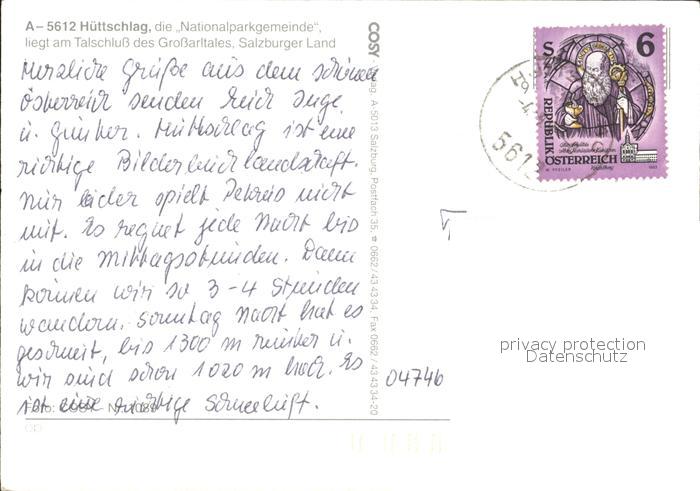 A–5612 Hüttschlag, die „Nationalparkgemeinde“,
liegt am Talschluß des Großarltales, Salzburger Land
Herzliche Grüße aus dem schönen
Österreich senden Euch Inge
u. Günther. Hüttschlag ist eine
richtige Bilderbuchlandschaft.
Nur leider spielt Petrus nicht
mit. Es regnet jede Nacht bis
in die Mittagsstunden. Dann
können wir so 3-4 Stunden
wandern. Sonntag Nacht hat es
geschneit, bis 1300 m runter u.
wir sind schon 1020 m hoch. Es
ist eine richtige Schneeluft.
Foto: COSY
COSY-Verlag, A-5013 Salzburg, Postfach 35, 0662/43 43 34, Fax 0662/43 43 34-20
04746
S 6
REPUBLIK
ÖSTERREICH
561
privacy protection
Datenschutz